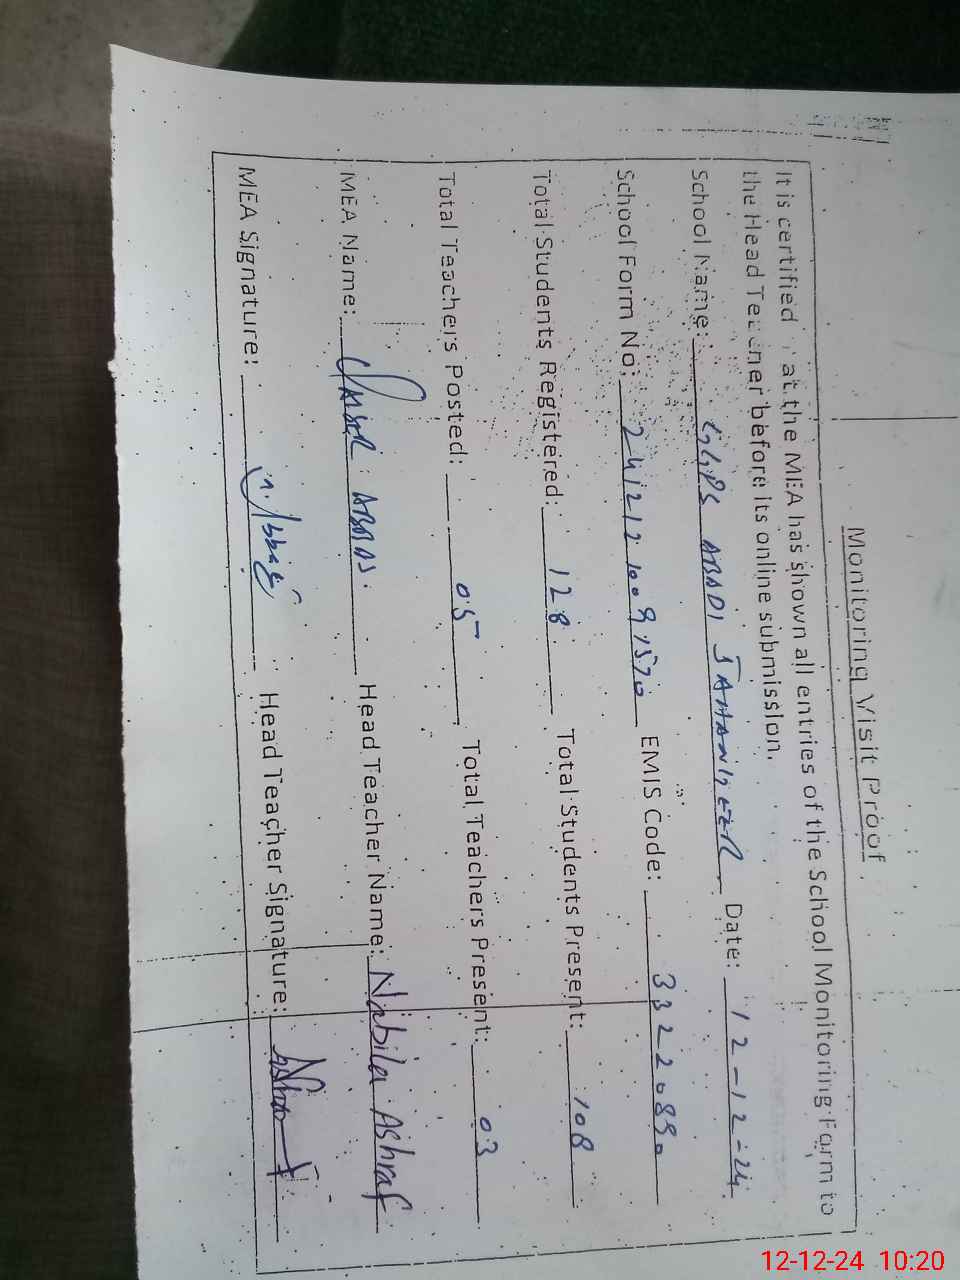 Monitoring Visit Proof
It is certified at the MEA has shown all entries of the School Monitoring Form to
the Head Teacher before its online submission.
School Name: GGPS ABADI JAHANGEER Date: 12-12-24
School Form No: EMIS Code:
Total Students Registered: 128 Total Students Present: 108
Total Teachers Posted: 05 Total Teachers Present: 03
MEA Name: ABBAS. Head Teacher Name: Nabila Ashraf
MEA Signature: Head Teacher Signature:
12-12-24 10:20